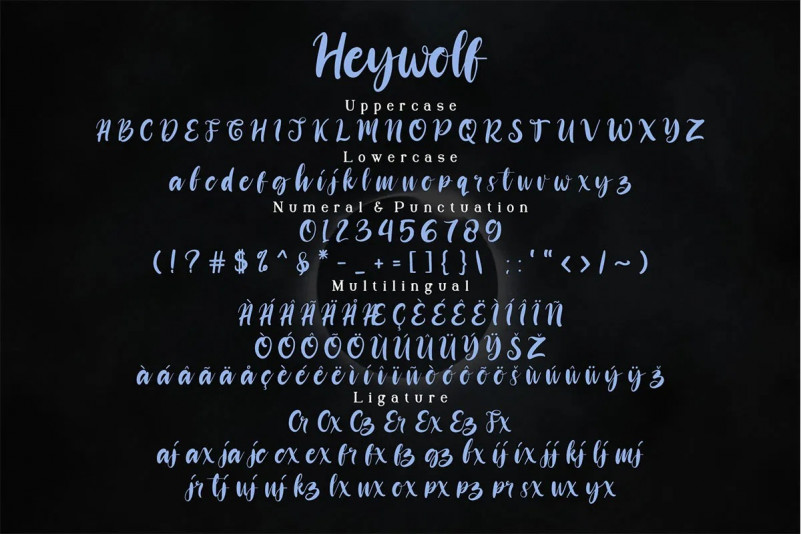 Heywolf
Uppercase
A B C D E F G H I J K L M N O P Q R S T U V W X Y Z
Lowercase
a b c d e f g h i j k l m n o p q r s t u v w x y z
Numeral & Punctuation
0 1 2 3 4 5 6 7 8 9
( ! ? # $ % ^ & * - _ + = [ ] { } \ ; : ' " < > / ~ )
Multilingual
À Á Â Ã Ä Å Æ Ç È É Ê Ë Ì Í Î Ï Ñ
Ò Ó Ô Õ Ö Ù Ú Û Ü Ý Ÿ Š Ž
à á â ã ä å ç è é ê ë ì í î ï ñ ò ó ô õ ö š ù ú û ü ý ÿ ž
Ligature
Cr Cx Cz Er Ex Ez Fx
aj ax ja jc cx ex fr fx fz gz hx ij ix jj kj lj mj
jr tj uj nj kz lx nx ox px pz pr sx ux yx